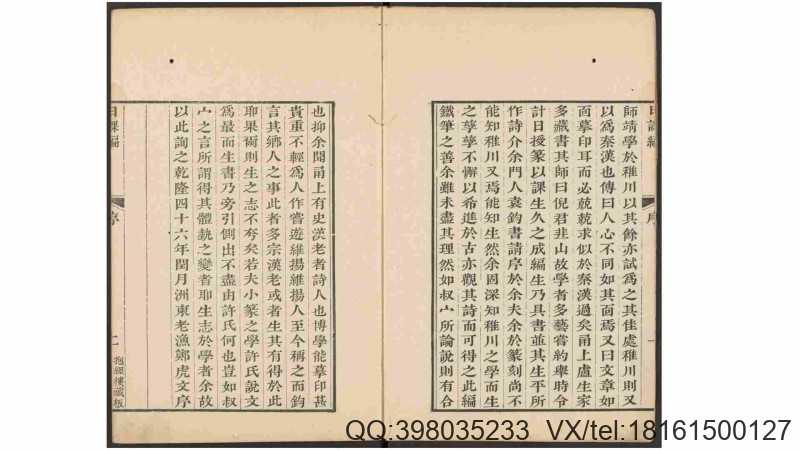 日課編
序
一
師靖學於稚川以其餘亦試爲之其佳處稚川則又
以爲秦漢也傳曰人心不同如其面焉又曰文章如
面摹印耳而必兢兢求似於秦漢過矣甬上盧生家
多藏書其師曰倪君非山故學者多藝嘗約舉時令
計日授篆以課生久之成編生乃具書並其生平所
作詩介余門人袁鈞書請序於余夫余於篆刻尚不
能知稚川又焉能知生然余固深知稚川之學而生
之孳孳不懈以希進於古亦觀其詩而可得之此編
鐵筆之善余雖未盡其理然如叔宀所論說則有合
也抑余聞甬上有史漢老者詩人也博學能摹印甚
貴重不輕爲人作嘗遊維揚維揚人至今稱之而鈞
言其鄉人之事此者多宗漢老或者生其有得於此
耶果爾則生之志不夸矣若夫小篆之學許氏說文
爲最而生書乃旁引側出不盡由許氏何也豈如叔
宀之言所謂得其體埶之變者耶生志於學者余故
以此詢之乾隆四十六年閏月洲東老漁鄭虎文序
日課編
序
二
抱經樓藏板
QQ:398035233 VX/tel:18161500127